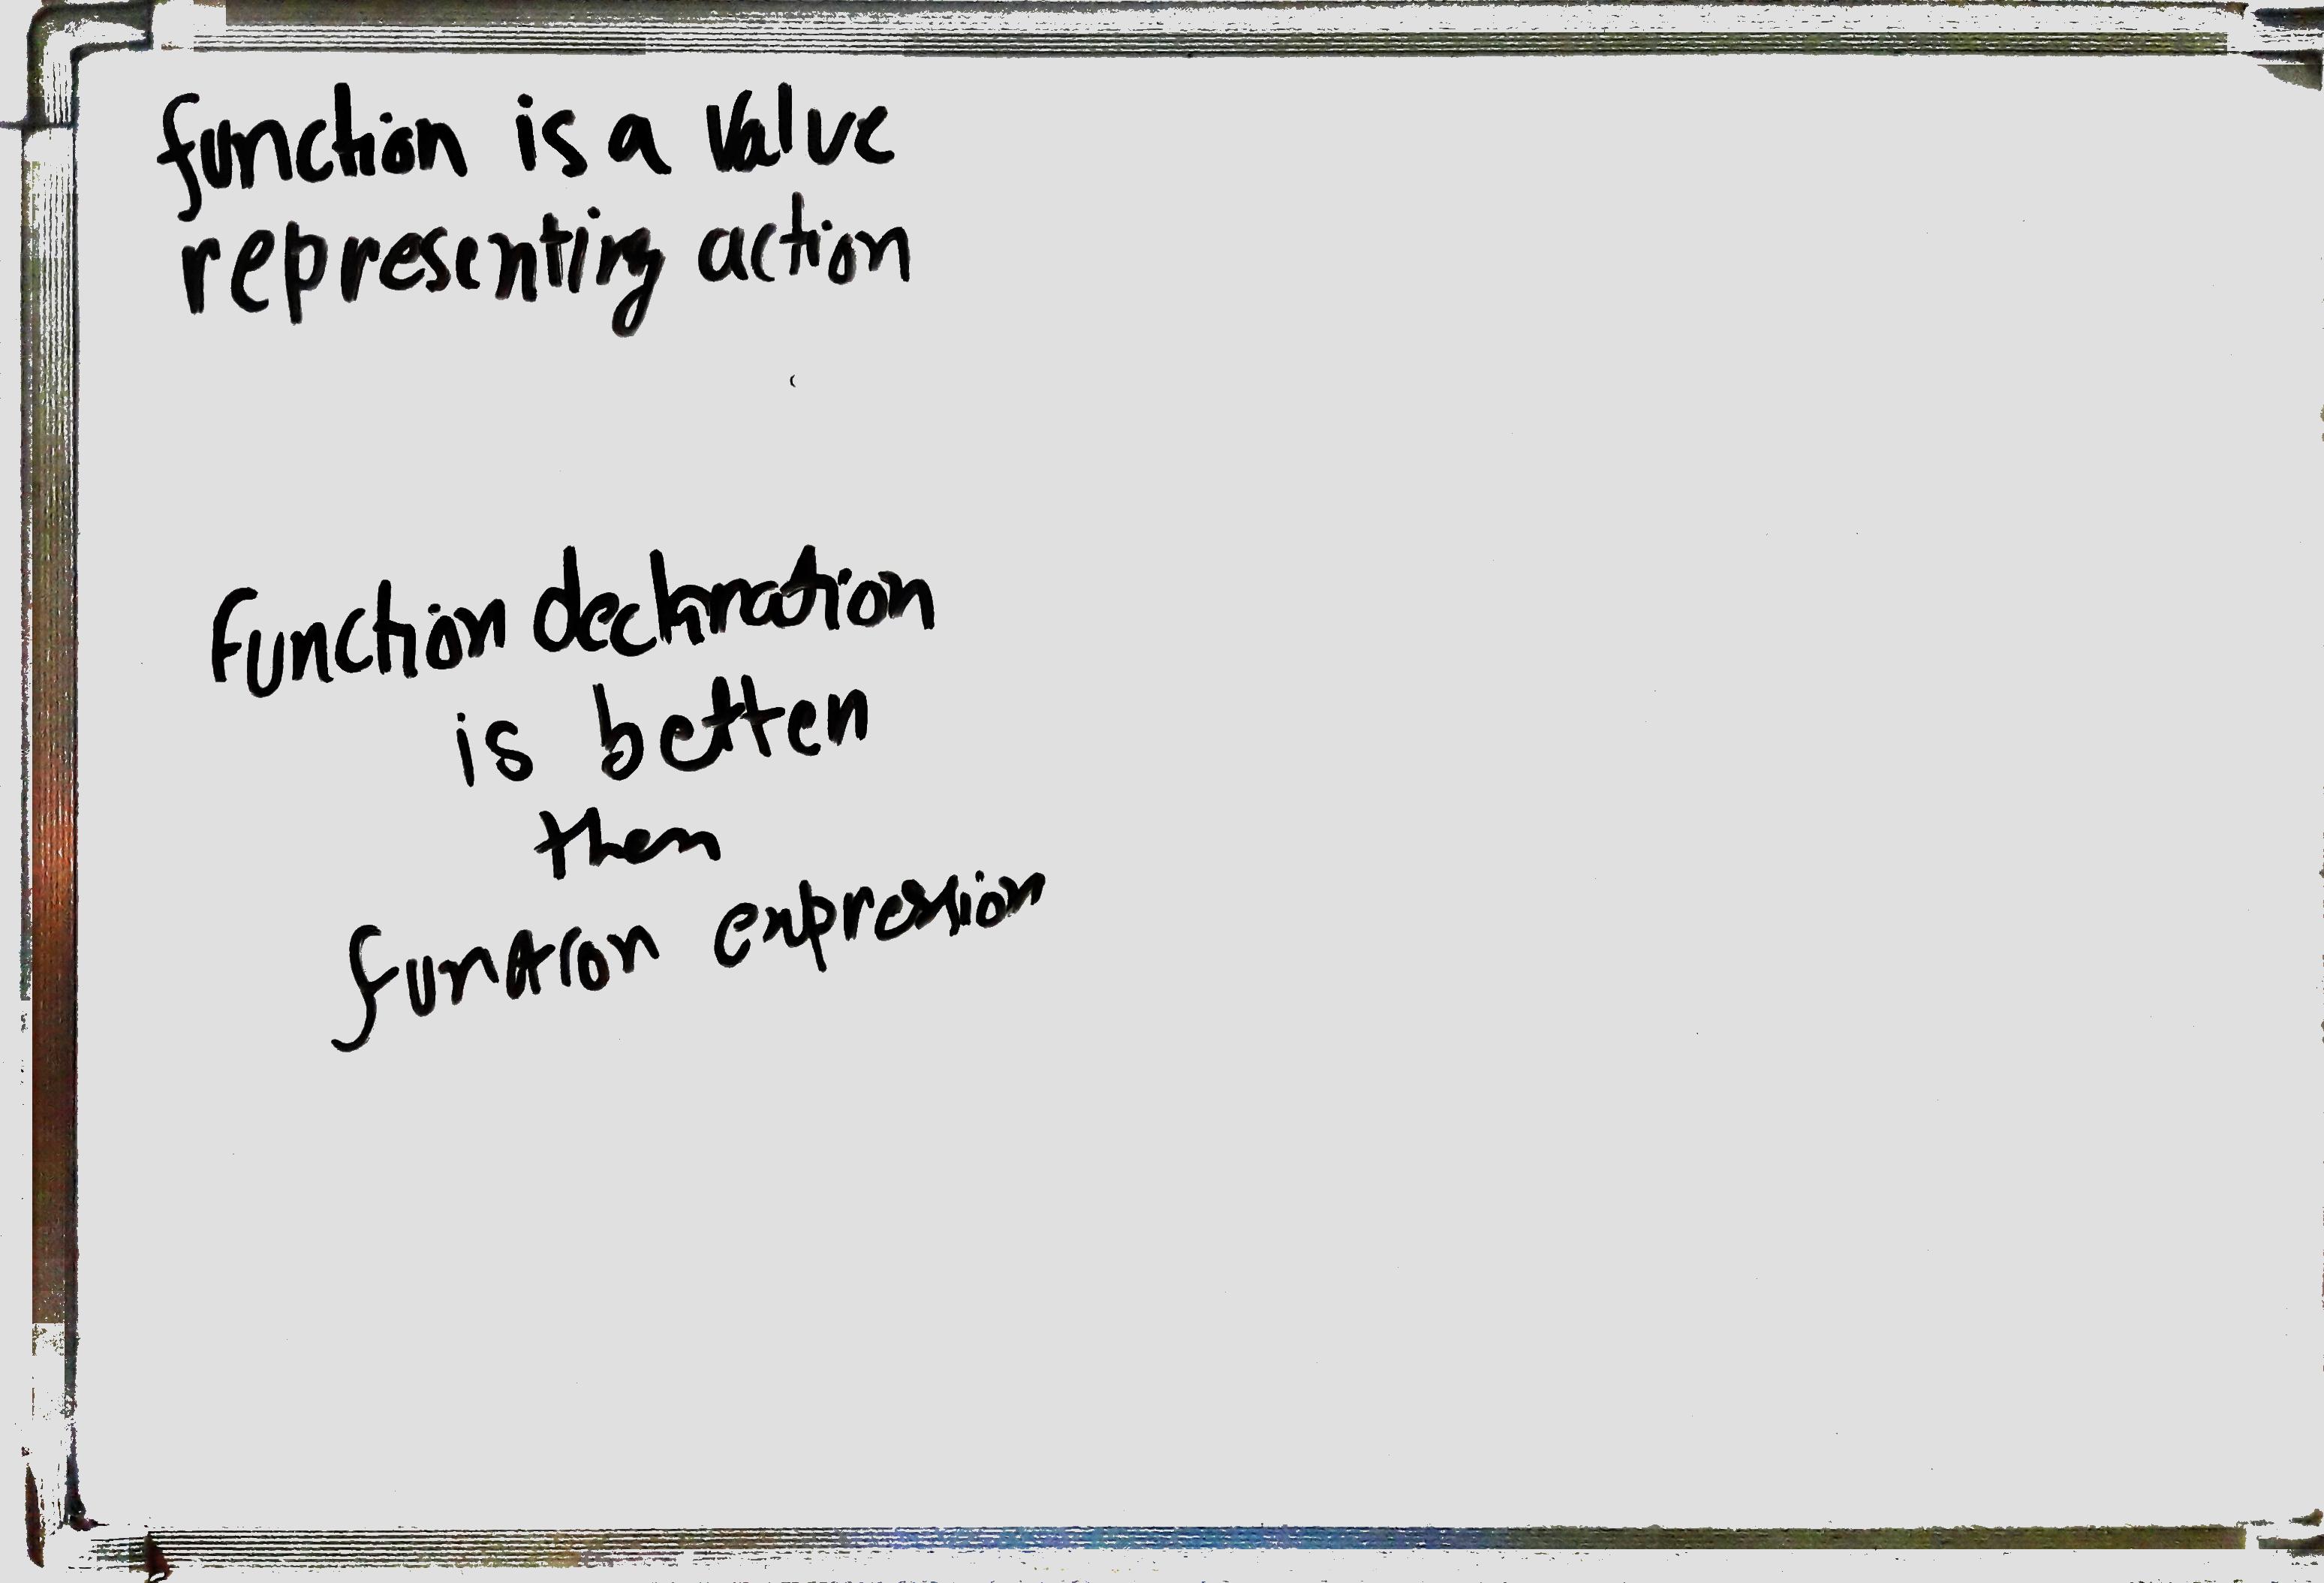 function is a value
representing action
Function declaration
is better
then
function expression